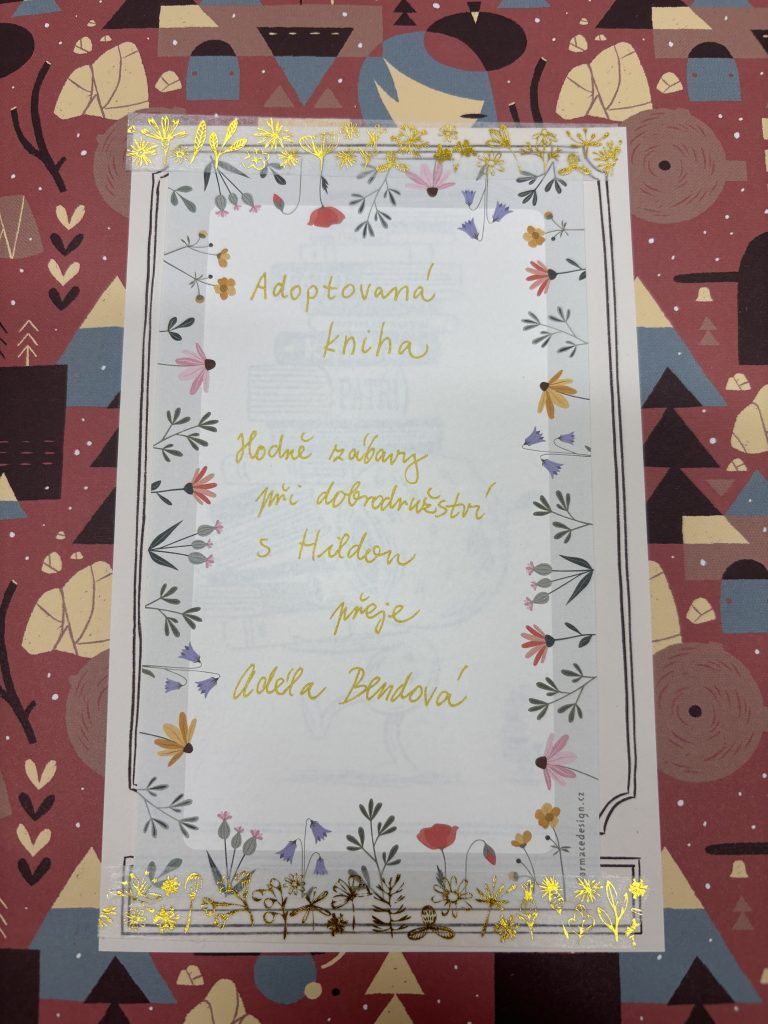 Adoptovaná
kniha
Hodně zábavy
při dobrodružství
s Hildou
přeje
Adéla Bendová
armacedesign.cz
PATŘÍ